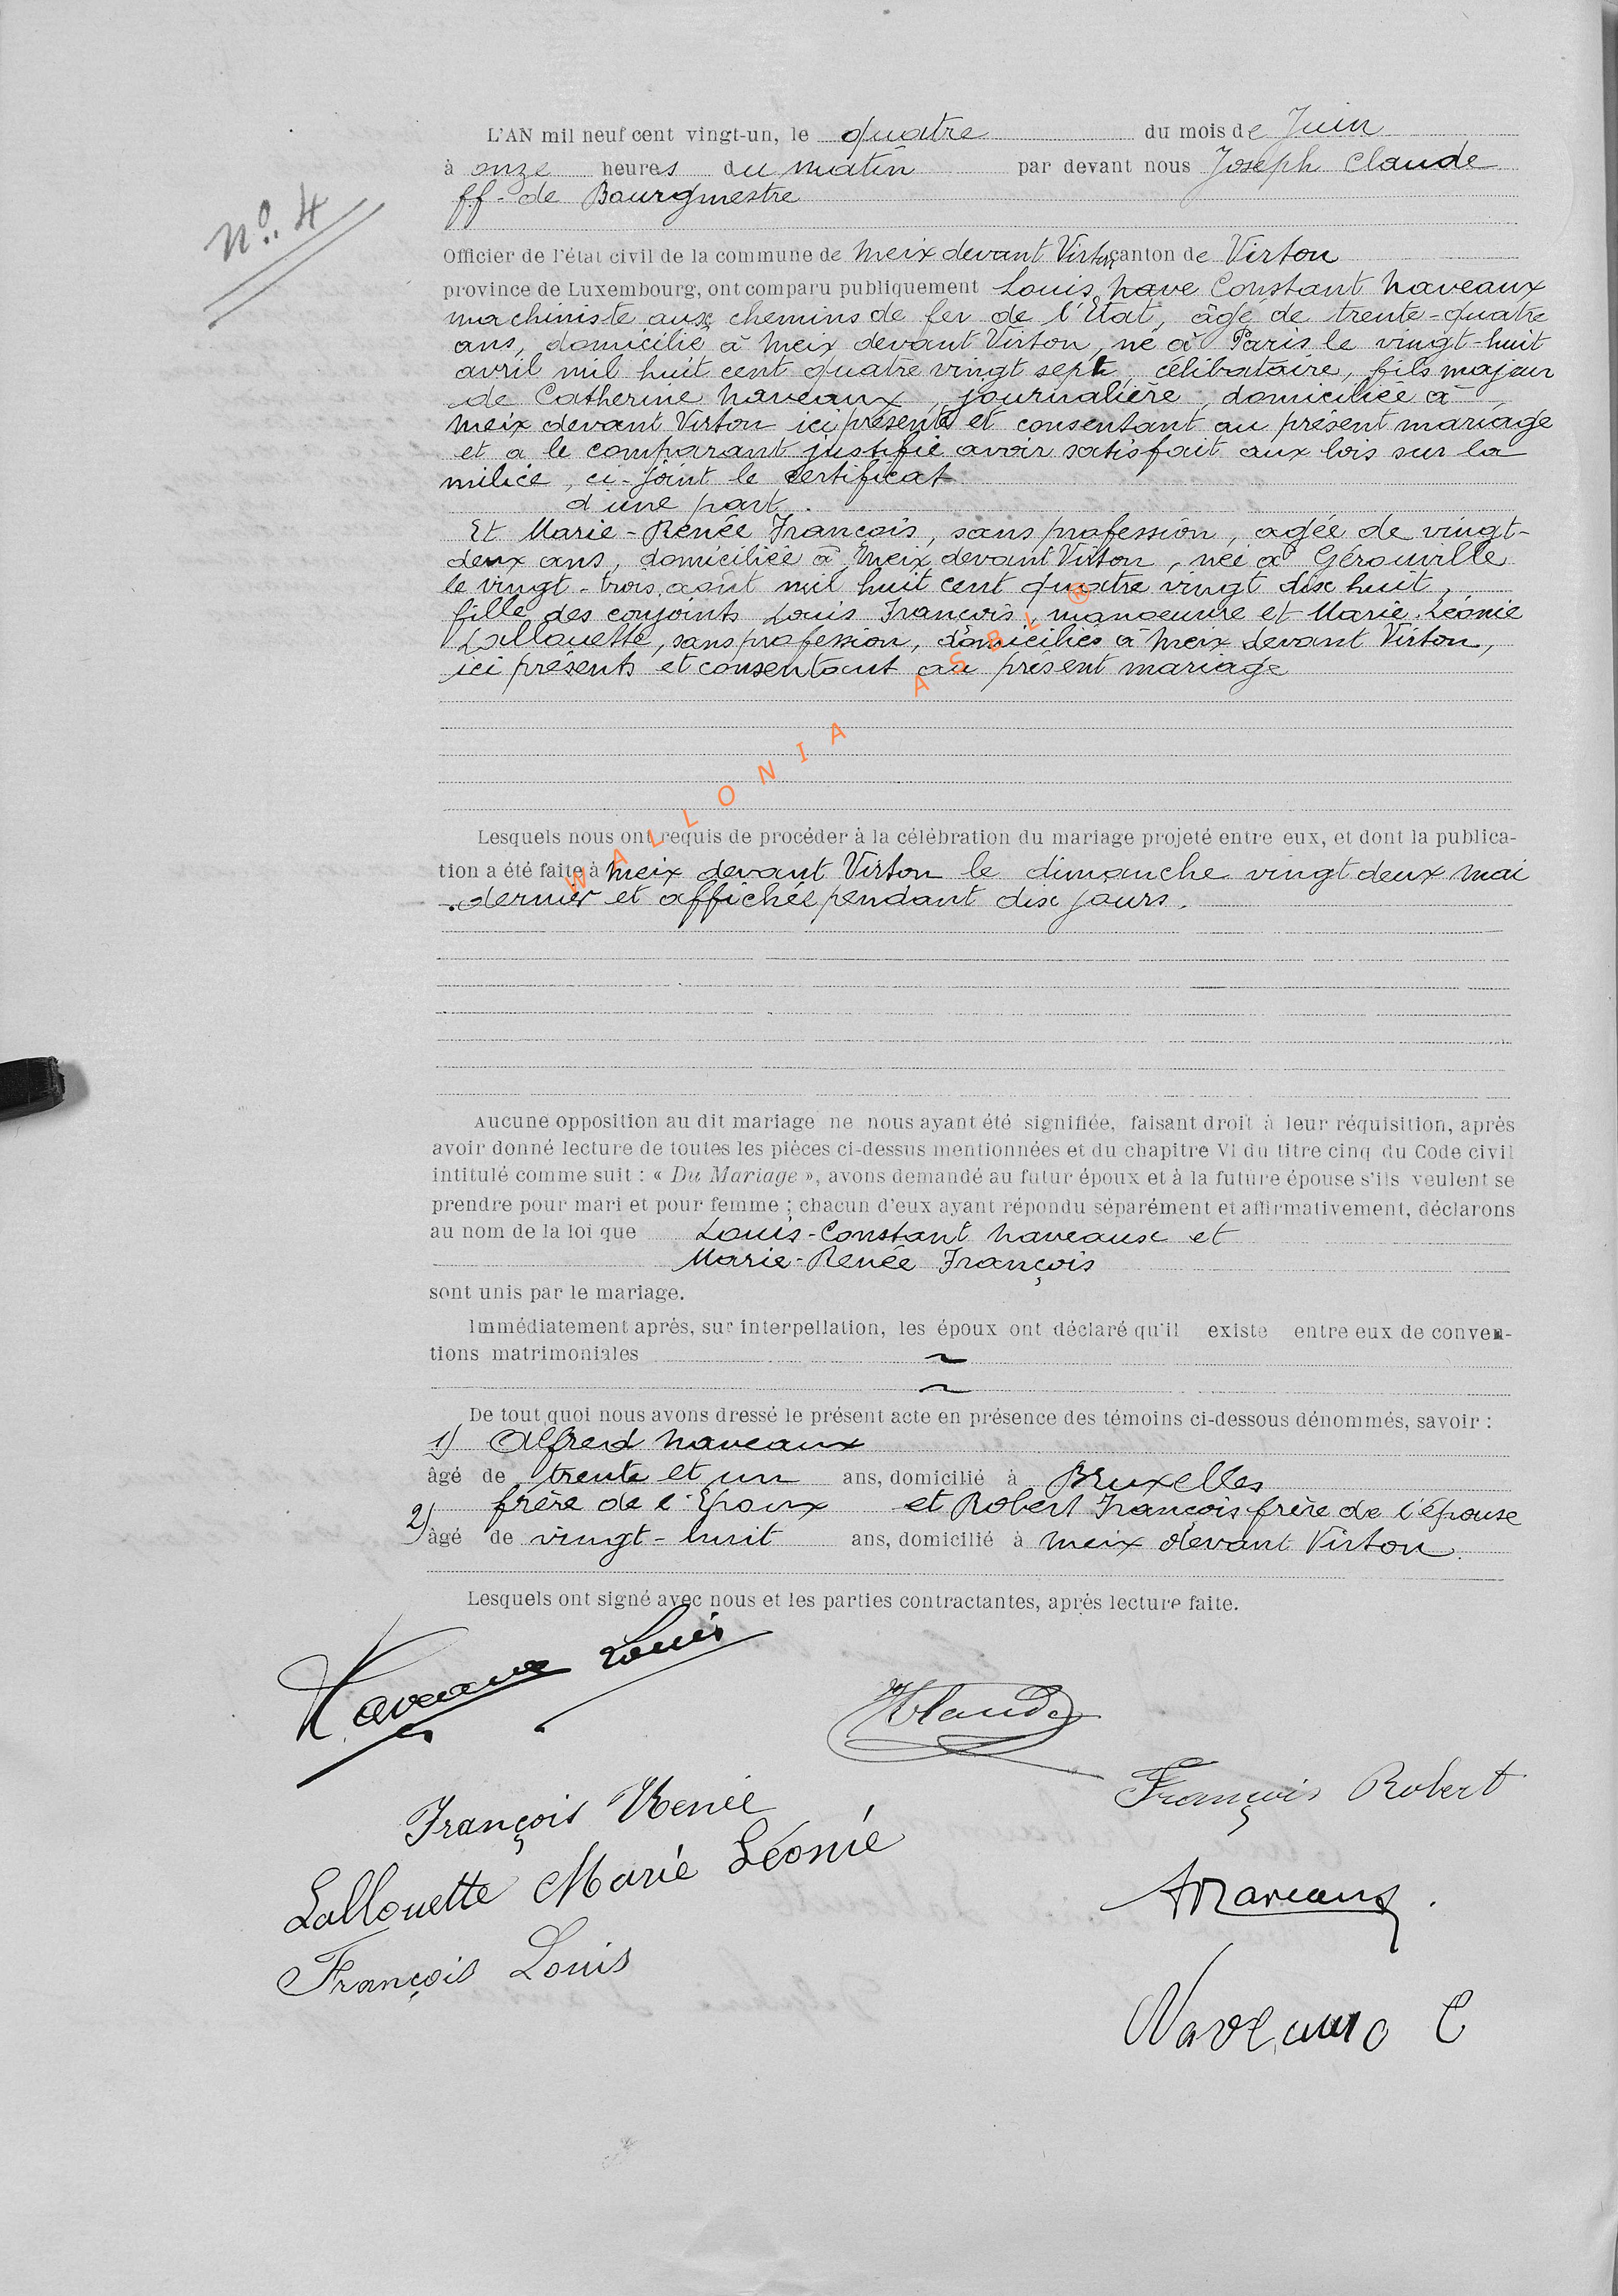 N°. 4
L'AN mil neuf cent vingt-un, le quatre du mois de Juin
à onze heures du matin par devant nous Joseph Claude
ff. de Bourgmestre
Officier de l'état civil de la commune de Meix devant Virton canton de Virton
province de Luxembourg, ont comparu publiquement Louis Constant Naveaux
machiniste aux chemins de fer de l'Etat, âgé de trente-quatre
ans, domicilié à Meix devant Virton, né à Paris le vingt-huit
avril mil huit cent quatre vingt sept, célibataire, fils majeur
de Catherine Naveaux, journalière, domiciliée à
Meix devant Virton ici présente et consentant au présent mariage
et a le comparant justifié avoir satisfait aux lois sur la
milice, ci-joint le certificat
d'une part.
Et Marie-Renée François, sans profession, agée de vingt-
deux ans, domiciliée à Meix devant Virton, née à Gérouville
le vingt-trois août mil huit cent quatre vingt dix huit,
fille des conjoints Louis François, manoeuvre et Marie Léonie
Lallouette, sans profession, domiciliés à Meix devant Virton,
ici présents et consentant au présent mariage
WALLONIA ASBL ®
Lesquels nous ont requis de procéder à la célébration du mariage projeté entre eux, et dont la publica-
tion a été faite à Meix devant Virton le dimanche vingt deux mai
dernier et affichée pendant dix jours.
Aucune opposition au dit mariage ne nous ayant été signifiée, faisant droit à leur réquisition, après
avoir donné lecture de toutes les pièces ci-dessus mentionnées et du chapitre VI du titre cinq du Code civil
intitulé comme suit : « Du Mariage », avons demandé au futur époux et à la future épouse s'ils veulent se
prendre pour mari et pour femme ; chacun d'eux ayant répondu séparément et affirmativement, déclarons
au nom de la loi que Louis-Constant Naveaux et
Marie-Renée François
sont unis par le mariage.
Immédiatement après, sur interpellation, les époux ont déclaré qu'il existe entre eux de conven-
tions matrimoniales ~
~
De tout quoi nous avons dressé le présent acte en présence des témoins ci-dessous dénommés, savoir :
1) Alfred Naveaux
âgé de trente et un ans, domicilié à Bruxelles
frère de l'Epoux et Robert François frère de l'épouse
2) âgé de vingt-huit ans, domicilié à Meix devant Virton.
Lesquels ont signé avec nous et les parties contractantes, après lecture faite.
Naveaux Louis
J Claude
François Robert
François Renée
Lallouette Marie Léonie
A Naveaux.
François Louis
Naveaux C